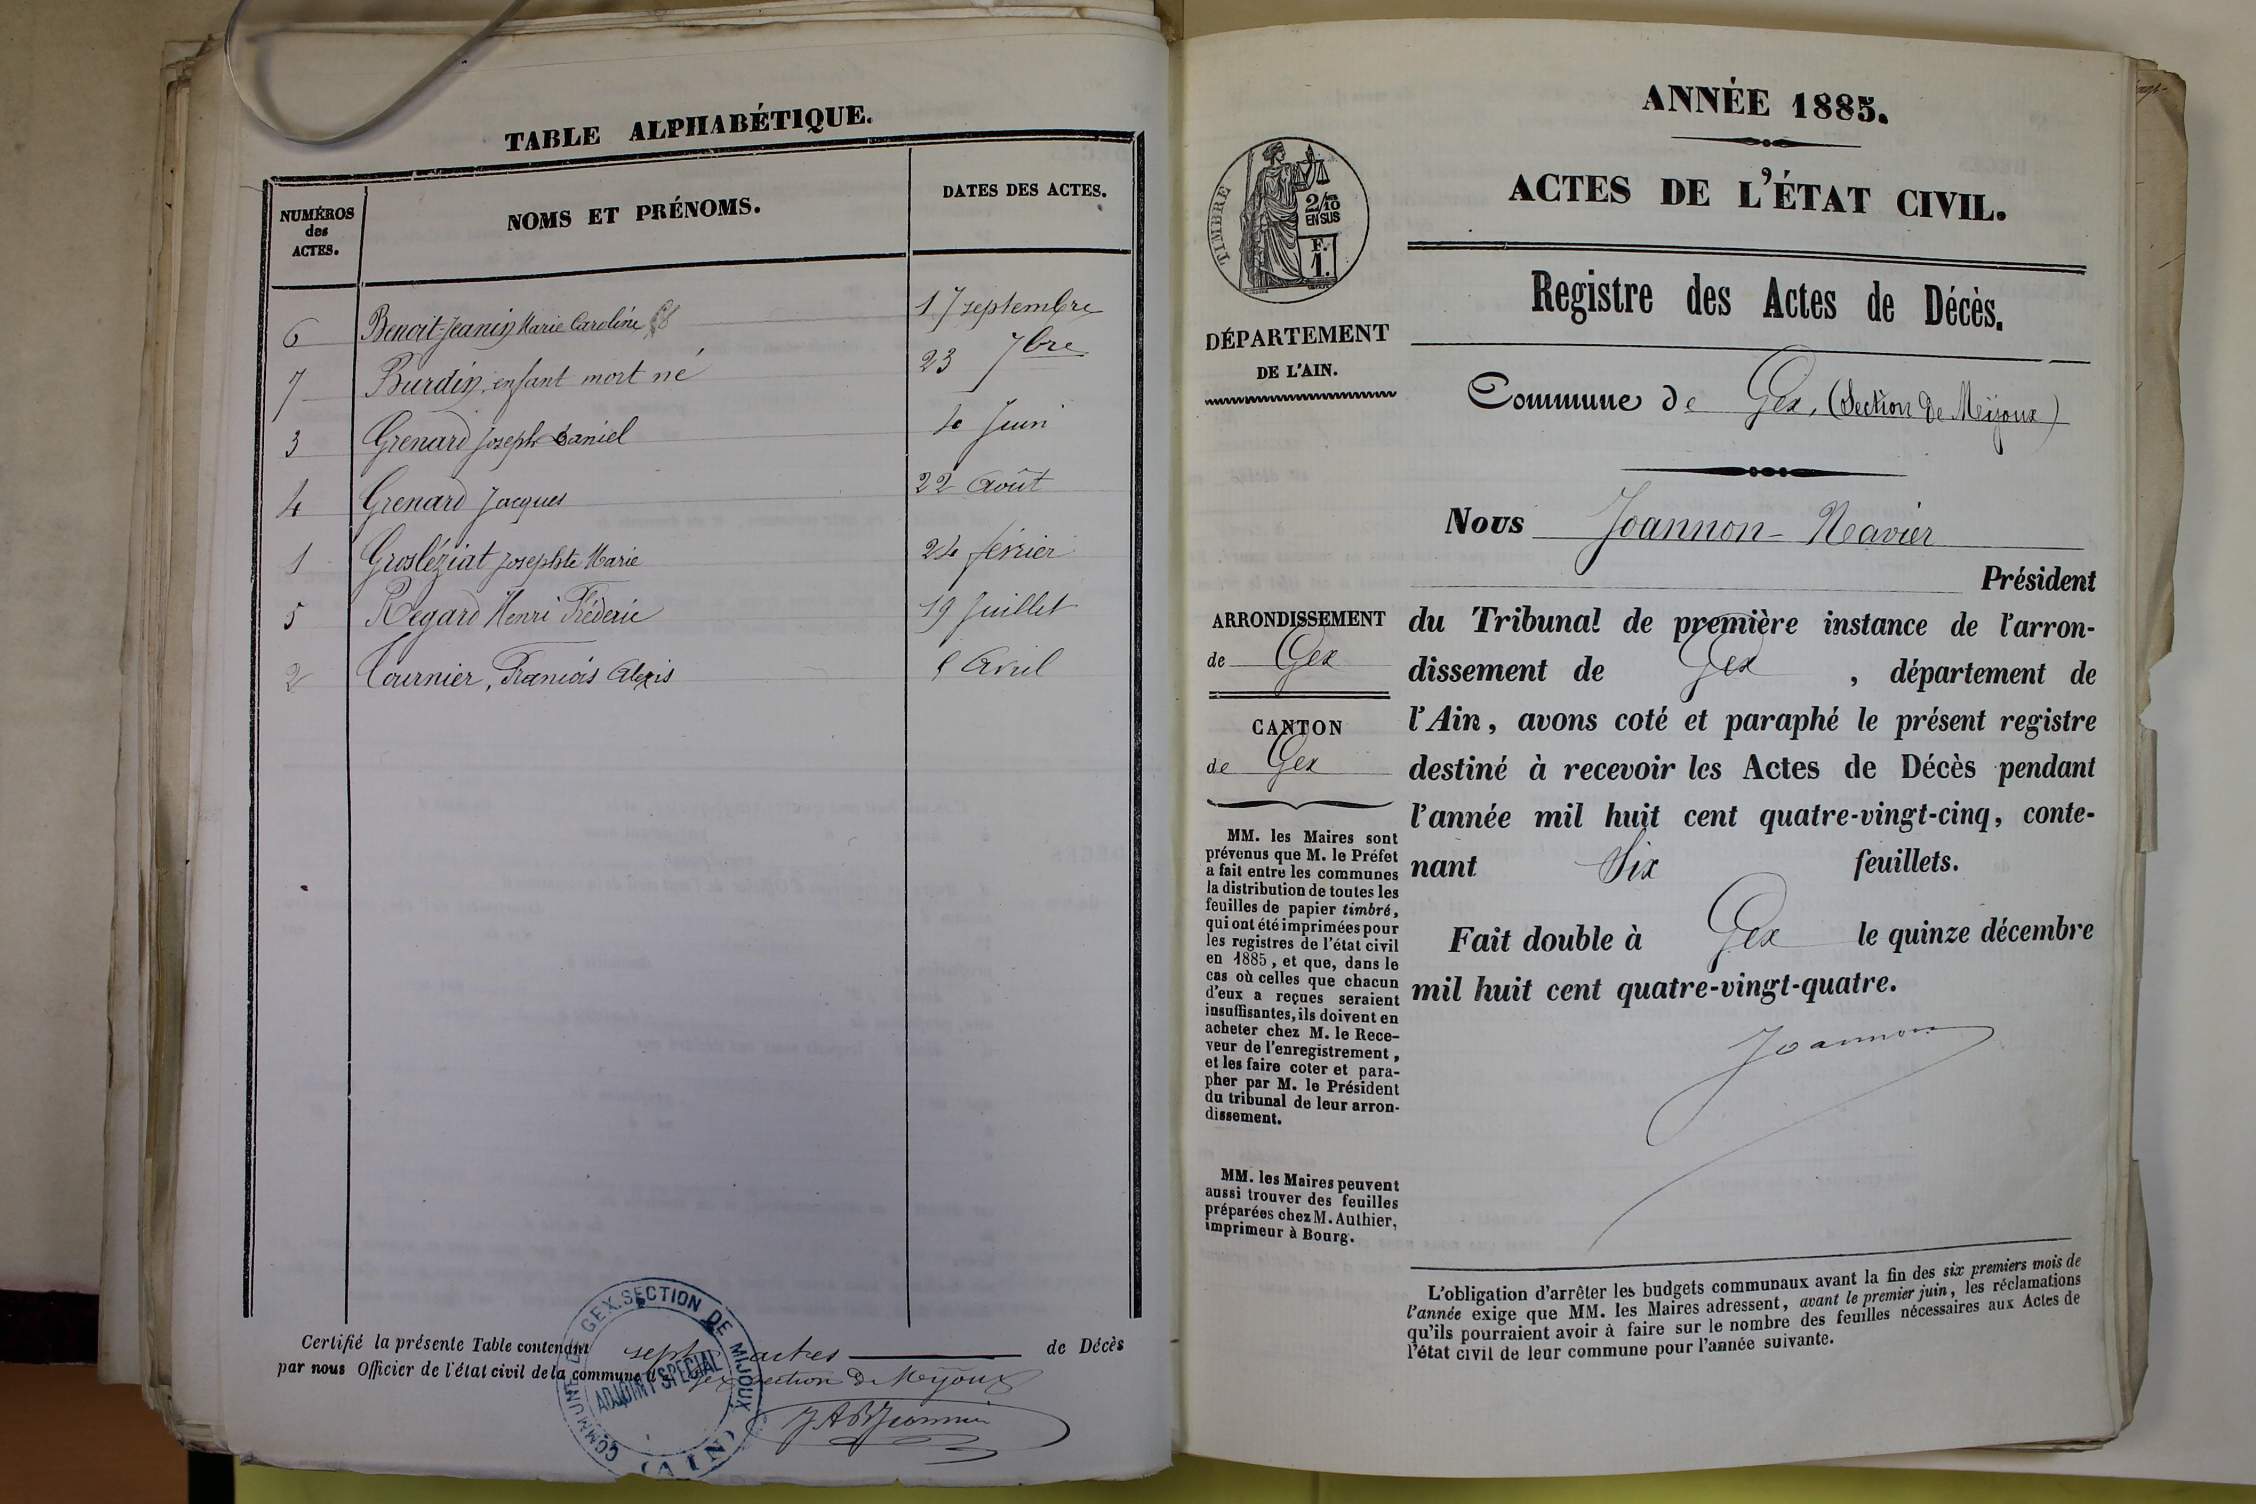 TABLE ALPHABÉTIQUE.
NUMÉROS
des
ACTES.
NOMS ET PRÉNOMS.
DATES DES ACTES.
6 Benoit-Jeanin Marie Caroline 17 septembre
7 Burdin, enfant mort né 23 7bre
3 Grenard Joseph Daniel 4 Juin
4 Grenard Jacques 22 Août
1 Grosléziat Josephte Marie 24 février
5 Regard Henri Fréderic 19 Juillet
2 Tournier, François Alexis Avril
Certifié la présente Table contenant sept actes de Décès
par nous Officier de l'état civil de la commune d Gex section De Mijoux
COMMUNE DE GEX. SECTION DE MIJOUX
ADJOINT SPECIAL
(AIN)
ANNÉE 1885.
ACTES DE L'ÉTAT CIVIL.
TIMBRE
2/10
EN SUS
F.
1.
DÉPARTEMENT
DE L'AIN.
Registre des Actes de Décès.
Commune de Gex, (Section De Mijoux)
Nous Joannon-Navier
Président
du Tribunal de première instance de l'arron-
dissement de Gex, département de
l'Ain, avons coté et paraphé le présent registre
destiné à recevoir les Actes de Décès pendant
l'année mil huit cent quatre-vingt-cinq, conte-
nant Six feuillets.
Fait double à Gex le quinze décembre
mil huit cent quatre-vingt-quatre.
Joannon
ARRONDISSEMENT
de Gex
CANTON
de Gex
MM. les Maires sont
prévenus que M. le Préfet
a fait entre les communes
la distribution de toutes les
feuilles de papier timbré,
qui ont été imprimées pour
les registres de l'état civil
en 1885, et que, dans le
cas où celles que chacun
d'eux a reçues seraient
insuffisantes, ils doivent en
acheter chez M. le Rece-
veur de l'enregistrement,
et les faire coter et para-
pher par M. le Président
du tribunal de leur arron-
dissement.
MM. les Maires peuvent
aussi trouver des feuilles
préparées chez M. Authier,
imprimeur à Bourg.
L'obligation d'arrêter les budgets communaux avant la fin des six premiers mois de
l'année exige que MM. les Maires adressent, avant le premier juin, les réclamations
qu'ils pourraient avoir à faire sur le nombre des feuilles nécessaires aux Actes de
l'état civil de leur commune pour l'année suivante.